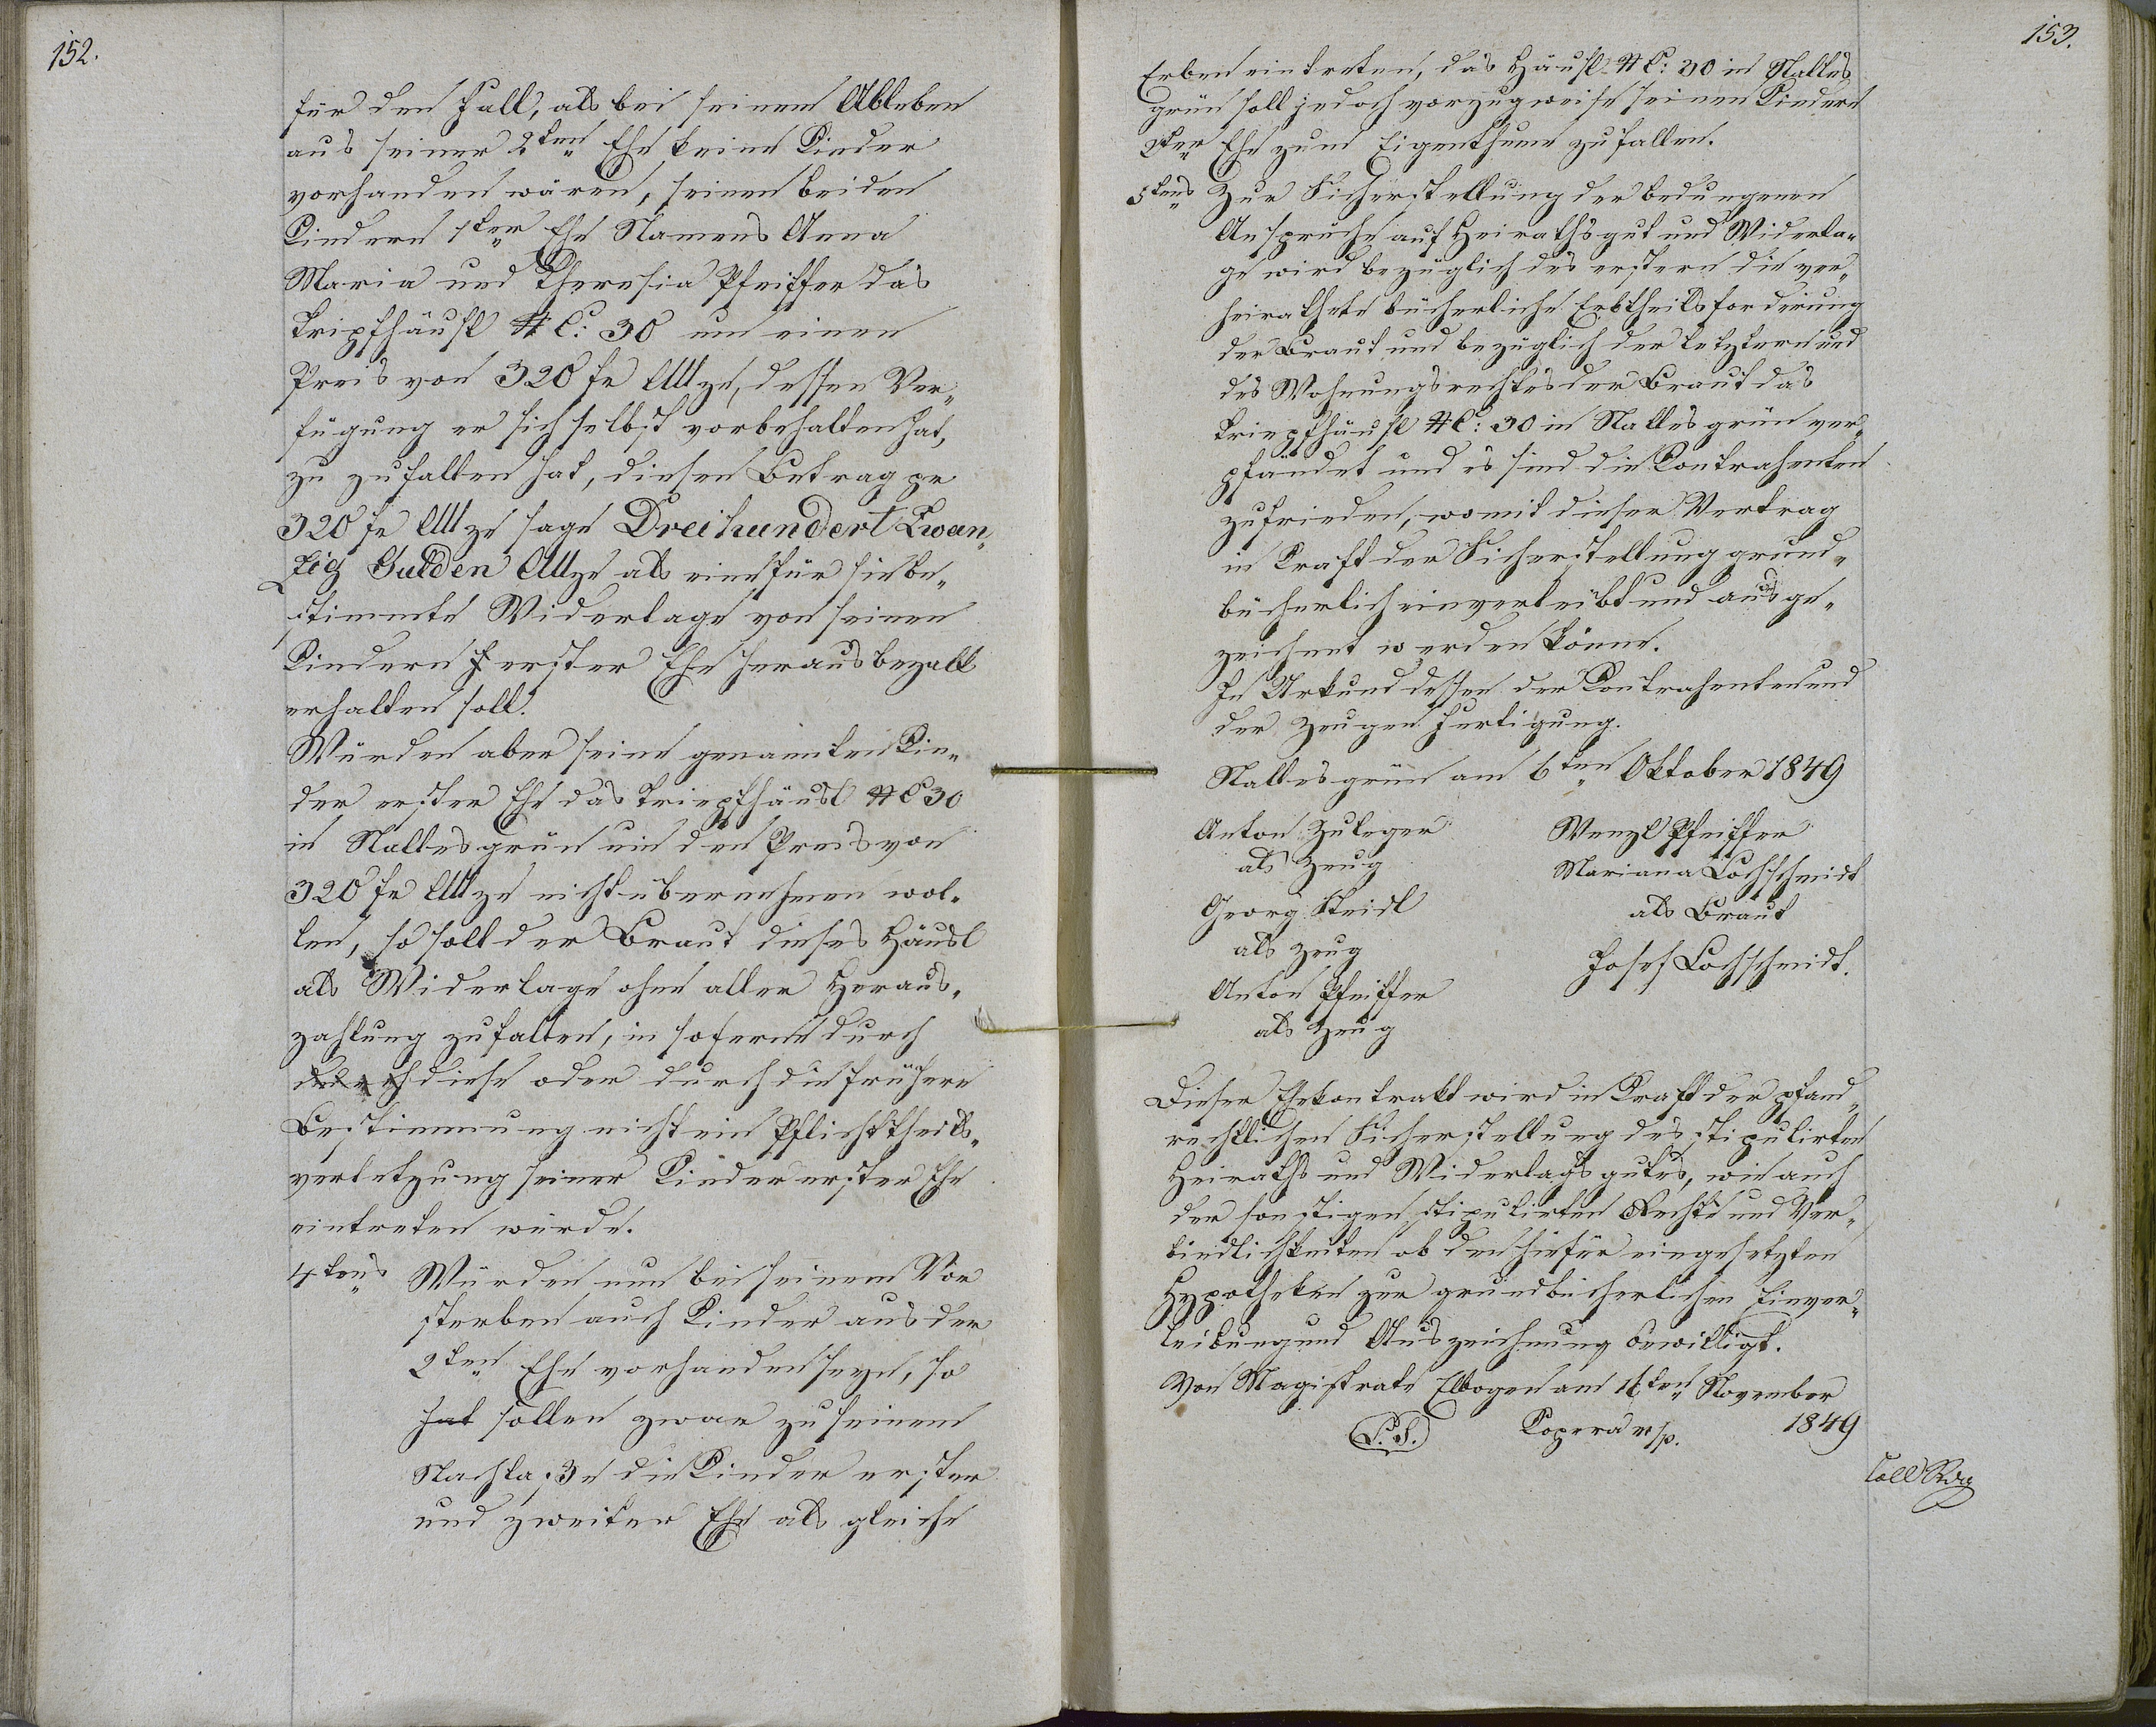 152.
für den Fall, als bei seinem Ableben
aus seiner 2ten Ehe keine Kinder
vorhanden wären, seinen beiden
Kindern 1ter Ehe Namens Anna
Maria und Theresia Pfeiffer das
Tripfhäusl NC: 30 um einen
Preis von 320 fr CMze, dessen Ver„
fügung er sich selbst vorbehalten hat,
zu zufallen hat, diesen Betrag pr
320 fr CMze sage Dreihundert Zwan„
zig Gulden CMze als eine für sie be„
stimmte Widerlage von seinen
Kindern erster Ehe herausbezalt
erhalten soll.
Würden aber seine genannten Kin„
der erster Ehe das Triepfhäusl NC 30
in Nallesgrün um den Preis von
320 fr CMze nicht übernehmen wol„
len, so soll der Braut dieses Häusl
als Widerlage ohne aller Heraus„
zahlung zufallen, in soferne durch
durch diese oder durch die frühere
Bestimmung nicht ein Pflichttheils„
verletzung seiner Kinder erster Ehe
eintreten würde.
4tens Würden nun bei seinem Vor
sterben auch Kinder aus der
2ten Ehe vorhanden seyn, so
hat sollen zwar zu seinem
Nachlaße die Kinder erster
und zweiter Ehe als gleiche
153.
Erben eintreten, das Häusl NC: 30 in Nalles
grün soll jedoch vorzugweise seinen Kindern
2ter Ehe zum Eigenthume zufallen.
5tens Zur Sicherstellung der bedungenen
Ansprüche auf Heirathsgut und Widerla„
ge wird bezüglich des erstern die ver„
heirathete bücherliche Erbtheilsforderung
der Braut und bezüglich der letztern und
des Wohnungsrechtes der Braut das
Triepfhäusl NC: 30 in Nallesgrün ver„
pfändet und es sind die Kontrahenten
zufrieden, womit dieser Vertrag
in Kraft der Sicherstellung grund„
bücherlich einverleibt und ausge„
zeichnet werden könne.
In Urkund dessen der Kontrahenten und
der Zeugen Fertigung.
Nallesgrün am 6ten Oktober 1849
Anton Zuleger Wenzl Pfeiffer
als Zeug Mariana Lochschmidt
Georg Steidl als Braut
als Zeug Josef Lochschmidt.
Anton Pfeiffer
als Zeug
Dieser Ehekontrakt wird in Kraft der pfand„
rechtlichen Sicherstellung des stipulirten
Heiraths und Widerlagsgutes, wie auch
der sonstigen stipulirten Rechte und Ver„
bindlichkeiten ob den hiefür eingesetzten
Hypotheken zur grundbücherlichen Einver„
leibung und Auszeichnung bewilligt.
Von Magistrate Elbogen am 16ten November
L. S. Kopera m/p. 1849
Coll